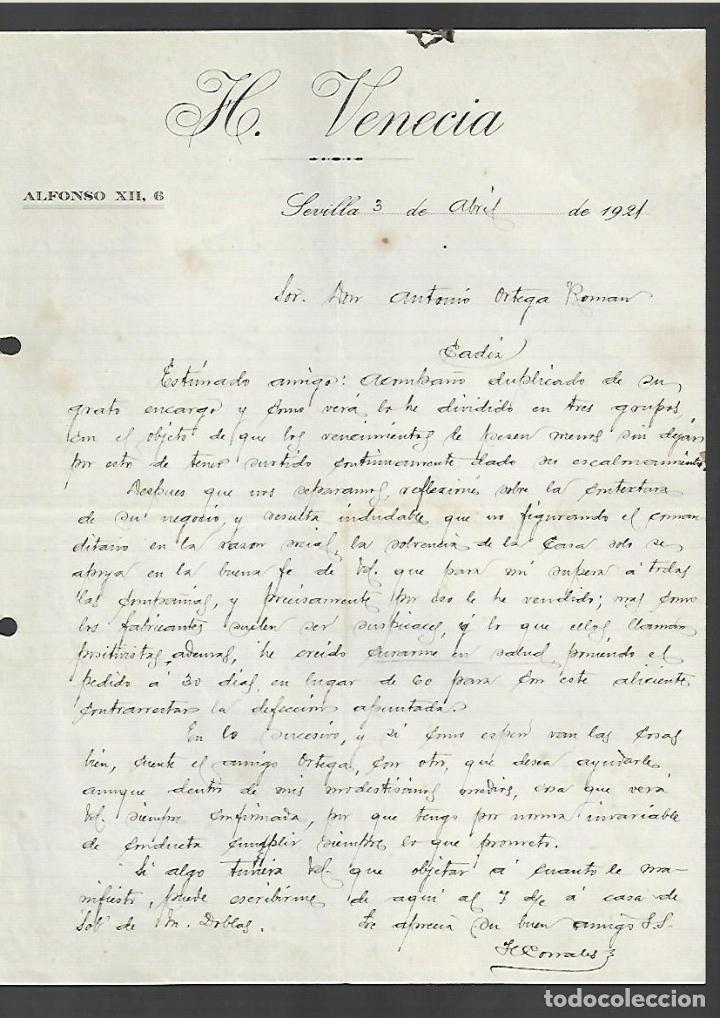 H. Venecia
ALFONSO XII, 6
Sevilla 3 de Abril de 1921
Sor. Don Antonio Ortega Roman
Cadiz
Estimado amigo: Acompaño duplicado de su
grato encargo y como verá lo he dividido en tres grupos,
con el objeto de que los vencimientos le pesen menos sin dejar
por esto de tener surtido continuamente dado su
Despues que nos separamos, reflexioné sobre la contextura
de su negocio, y resulta indudable que no figurando el coman
ditario en la razon social, la solvencia de la Casa solo se
apoya en la buena fe de Vd. que para mi supera á todas
las compañias, y precisamente por eso le he vendido; mas como
los fabricantes suelen ser suspicaces, ó lo que ellos llaman
positivistas, ademas, he creido curarme en salud poniendo el
pedido á 30 dias, en lugar de 60 para con este aliciente
contrarrestar la defeccion apuntada.
En lo sucesivo, y si como espero van las cosas
bien, cuente el amigo Ortega, con otro, que desea ayudarle
aunque dentro de mis modestisimos medios, cosa que verá
Vd. siempre confirmada, por que tengo por norma invariable
de conducta cumplir siempre lo que prometo.
Si algo tuviera Vd. que objetar á cuanto le ma-
nifiesto, puede escribirme de aqui al 7 á casa de
de M. Doblas. Le aprecia su buen amigo S.S.
H Corrales
todocoleccion
todocoleccion.net